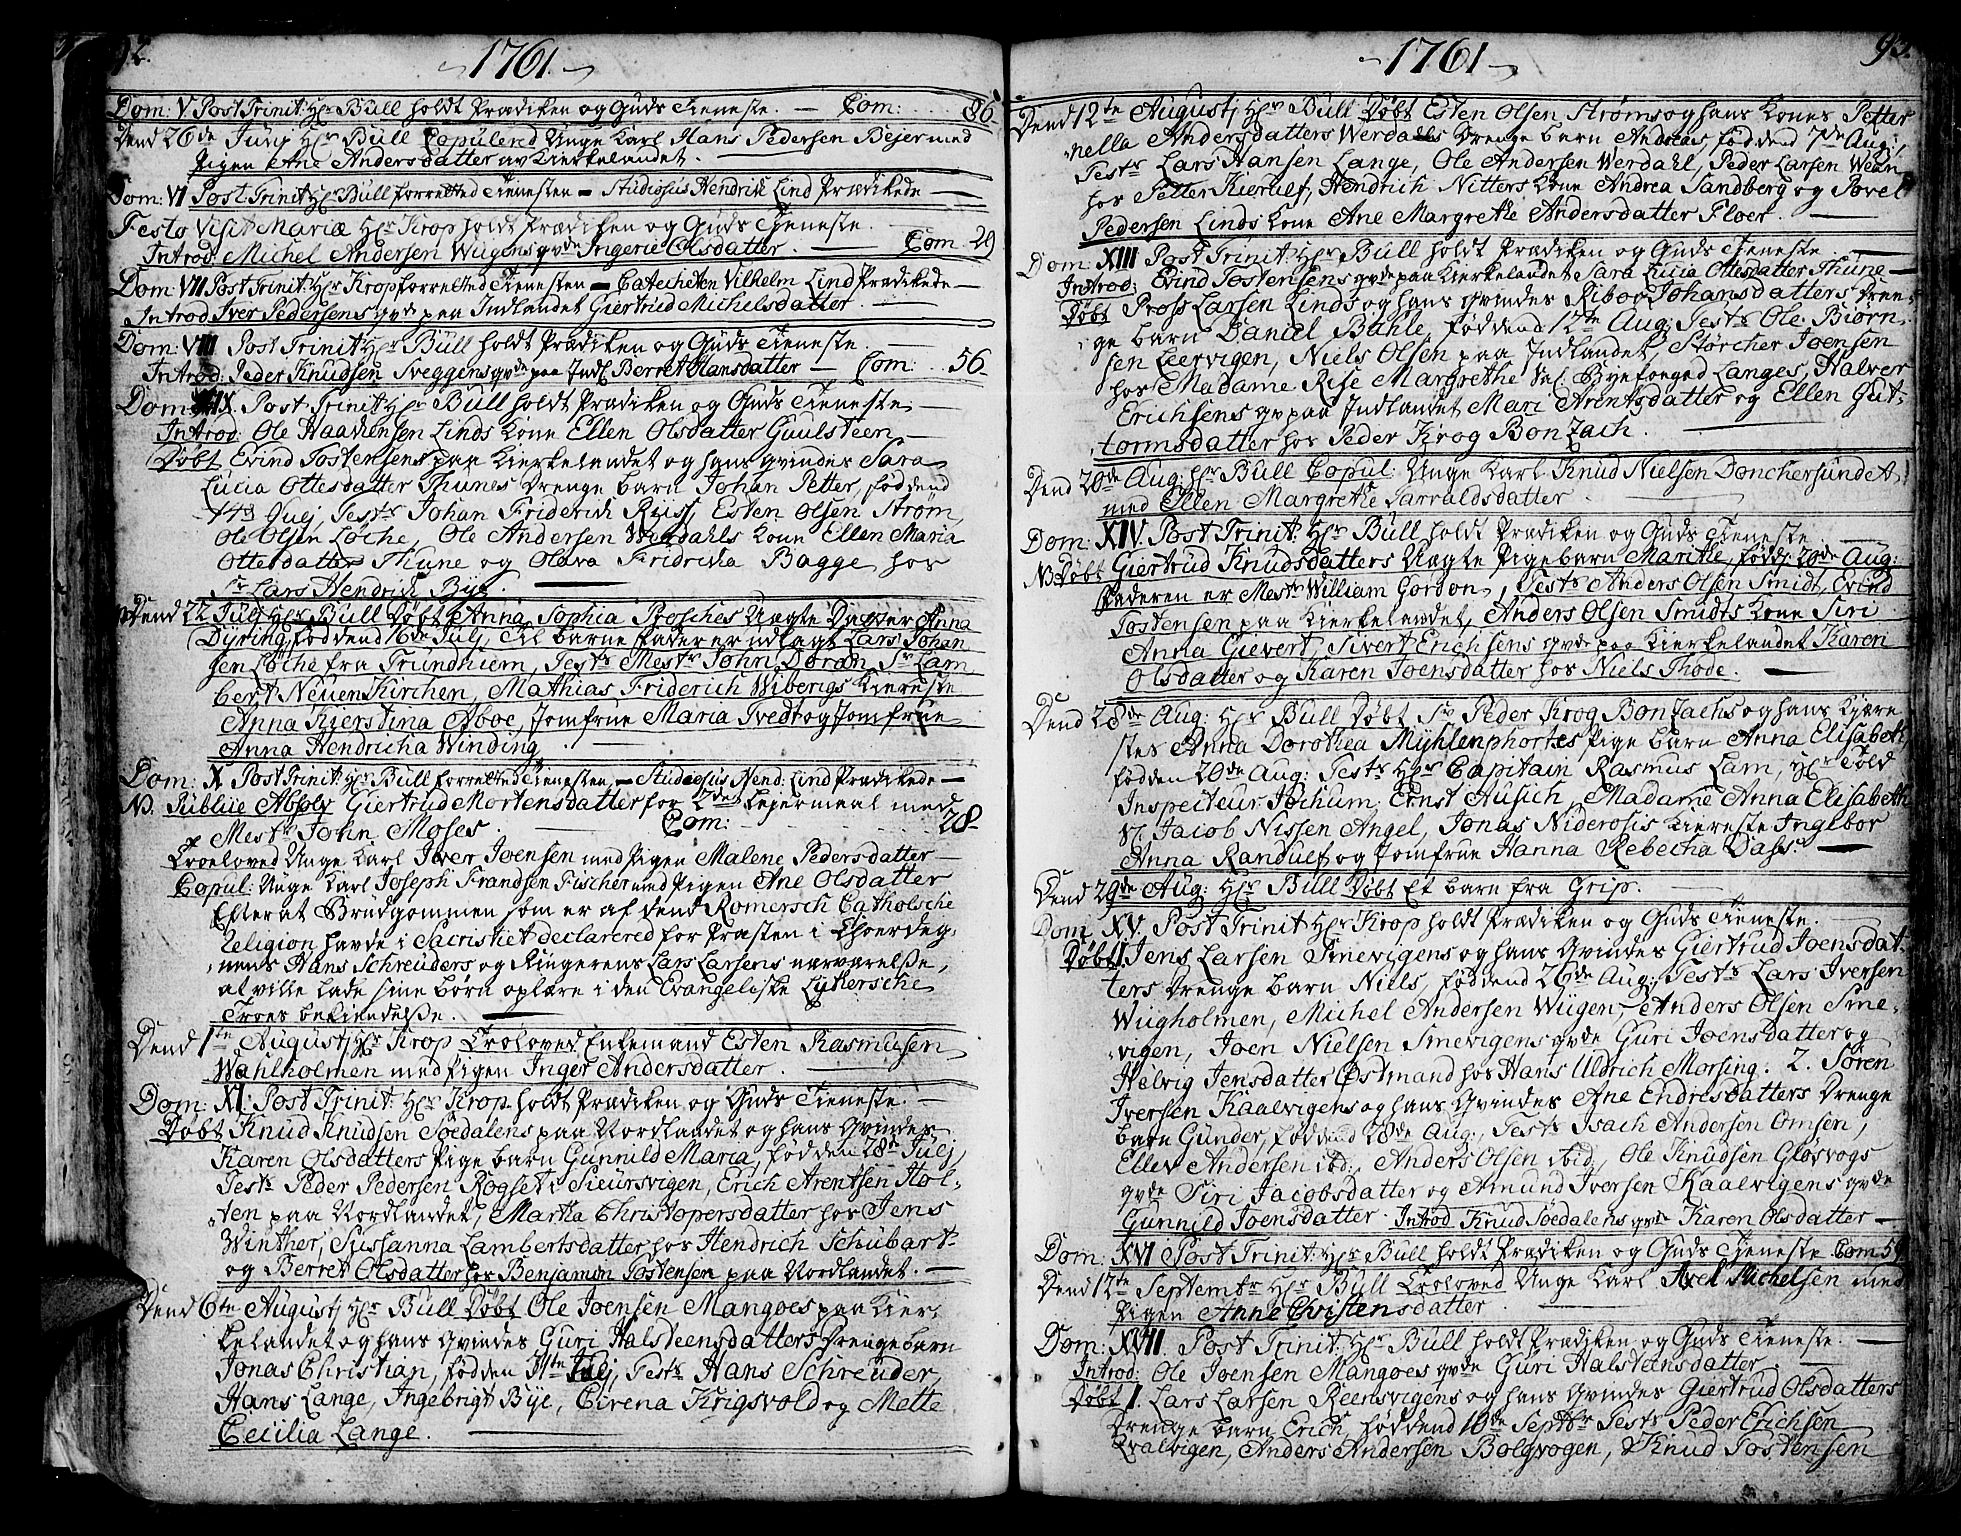 92.
1761.
Dom: V. Post Trinit: Hr Bull holdt Prædiken og Guds Tieneste. — Com: .. 86.
Dend 26de Junij Hr Bull Copulerd Unge Karl Hans Pedersen Bejer med
Pigen Ane Andersdatter av Kierkelandet.
Dom: VI Post Trinit: Hr Bull forretted Tienesten — Studiosus Hendrik Lind Prædikede —
Festo Visit: Mariæ Hr Krop holdt Prædiken og Guds Tieneste. —
Introd: Michel Andersen Wugens qvde Ingerie Olsdatter. — Com. 29
Dom: VII Post Trinit: Hr Krop forretted Tienesten — Catecheten Vilhelm Lind Prædikede —
Introd Iver Pedersens qvde paa Indlandet Giertrud Michelsdatter. —
Dom: VIII Post Trinit Hr Bull holdt Prædiken og Guds Tieneste. —
Introd: Peder Knudsen Sveggens qvde paa Indl: Berret Hansdatter — Com: .. 56.
Dom: IX. Post Trinit: Hr Bull holdt Prædiken og Guds Tieneste. —
Introd: Ole Haachensen Linds Kone Ellen Olsdatter Guulsteen —
Døbt Evind Jostensens paa Kierkelandet og hans Qvindes Sara
Lucia Ottesdatter Thunes Drenge barn Johan Petter, fød dend
14 Julj, Testr Johan Friderich Russ, Esten Olsen Strøm,
Ole Olsen Løche, Ole Andersen Werdahls Kone Ellen Maria
Ottesdatter Thune og Olava Fridricha Bagge hos
Sr Lars Hendrich Bye.
Dend 22 Julj Hr Bull Døbt Anna Sophia Brosches Uægte Datter Anna
Dyring, fød dend 16de Julj, til barne fader er udlagt Lars Johan
sen Løche fra Trundhiem, Testr Mestr John Doran, Sr Lam
bert Neuen Kirchen, Mathias Friderich Wibergs Kiereste
Anna Kjerstina Aboe, Jomfrue Maria Tvedt og Jomfrue
Anna Hendricha Winding. —
Dom: X Post Trinit: Hr Bull forretted Tienesten, — Studiosus Hend: Lind Prædikede —
N. Publice Absolv Giertrud Mortensdatter for 2den Lejermaal med
Mestr John Moses. Com: .. 28.
Troeloved Unge Karl Iver Joensen med Pigen Malene Pedersdatter —
Copul: Unge Karl Joseph Frandsen Fischer med Pigen Ane Olsdatter
Efter at Brudgommen som er af dend Romersch Catholsche
Religion havde i Sacristiet declarered for Præsten i Choerdeg-
nens Hans Schreuders og Ringerens Lars Larsens nærværelße,
at ville lade sine børn oplære i den Evangeliske Lutersche
Troes bekiendelße.
Dend 1te Augustj Hr Krop Troloved Enkemand Esten Rasmusen
Wahlholmen med Pigen Inger Andersdatter. —
Dom: XI. Post Trinit: Hr Krop holdt Prædiken og Guds Tieneste. —
Døbt Knud Knudsen Søedalens paa Nordlandet og hans Qvindes
Karen Olsdatters Pige barn Gunnild Maria, fød den 28de Julj,
Testr Peder Pedersen Rogset i Sieursvigen, Erich Arentsen Hol-
ten paa Nordlandet, Martha Christopersdatter hos Jens
Winther, Sussanna Lambertsdatter hos Hendrich Schubart
og Berret Olsdatter hos Benjamin Jostensen paa Nordlandet. —
Dend 6te Augustj Hr Bull Døbt Ole Joensen Mangoes paa Kier-
kelandet og hans Qvindes Guri Halsteensdatters Drenge barn
Jonas Christian, fødden 31te Julj, Testr Hans Schreuder,
Hans Lange, Ingebrigt Bye, Cirena Krigsvold og Mette
Cecilia Lange. —
93.
1761
Dend 12te Augustj Hr Bull Døbt Esten Olsen Strøms og hans Kones Petter
nella Andersdatters Werdahls Drenge barn Andreas, fød dend 7de Aug:,
Testr Lars Hansen Lange, Ole Andersen Werdahl, Peder Larsen Wean
hos Petter Kierulf, Hendrich Nitters Kone Andrea Sandberg og Povel
Pedersen Linds Kone Ane Margrethe Andersdatter Floer. —
Dom: XIII Post Trinit: Hr Bull holdt Prædiken og Guds Tieneste —
Introd: Evind Jostensens qvde paa Kierkelandet Sara Lucia Ottesdatter Thune —
Døbt Pross Larsen Linds og hans Qvindes Riboe Johansdatters Dren-
ge barn Daniel Buhle, fød dend 12te Aug: Testr Ole Biørn-
sen Leervigen, Niels Olsen paa Indlandet, Størcher Joensen
hos Madame Rise Margrethe Sal. Byefoged Langes, Halver
Erichsens qv paa Indlandet Mari Arentsdatter og Ellen Gut-
tormsdatter hos Peder Krog Bonzach. —
Dend 20de Aug: Hr Bull Copul: Unge Karl Knud Nielsen Donchersund
med Ellen Margrethe Jarvaldsdatter.
Dom: XIV. Post Trinit: Hr Bull holdt Prædiken og Guds Tieneste. —
N Døbt Giertrud Knudsdatters Uægte Pige barn Marithe, fød 20de Aug:
Faderen er Mestr William Gordon, Testr Anders Olsen Smidt, Evind
Jostensen paa Kierkelandet, Anders Olsen Smidts Kone Siri
Anna Gievert, Sivert Erichsens qvde paa Kierkelandet Karen
Olsdatter og Karen Joensdatter hos Niels Thode. —
Dend 28de Aug: Hr Bull Døbt Sr Peder Krog Bonzachs og hans Kjære
stes Anna Dorothea Mühlenphortes Pige barn Anna Elisabeth,
fødden 20de Aug: Testr Hr Capitain Rasmus Lam, Hr Told
Inspecteur Jochum Ernst Ausich, Madame Anna Elisabeth
Sl. Jacob Nissen Angel, Jonas Niderosis Kiereste Ingebor
Anna Randulf og Jomfrue Hanna Rebecha Dass. —
Dend 29de Aug: Hr Bull Døbt Et barn fra Grip.
Dom XV. Post Trinit: Hr Krop holdt Prædiken og Guds Tieneste. —
Døbt 1. Jens Larsen Smevigens og hans Qvindes Giertrud Joensdat-
ters Drenge barn Niels, fød dend 26de Aug: Testr Lars Iversen
Wugholmen, Michel Andersen Wugen, Anders Olsen Sme-
vigen, Joen Nielsen Smevigens qvde Guri Joensdatter og
Helvig Jensdatter Østmand hos Hans Uldrich Morsing. 2. Søren
Iversen Kaalvigens og hans Qvindes Ane Endresdatters Drenge
barn Gunder, fød dend 28de Aug:, Testr Isach Andersen Omsen,
Ellev Andersen ibd:, Anders Olsen ibid, Ole Knudsen Gløsvogs
qvde Siri Jacobsdatter og Amund Iversen Kaalvigens qvde
Gunnild Joensdatter. Introd Knud Søedalens qvde Karen Olsdatter —
Dom: XVI Post Trinit: Hr Bull holdt Prædiken og Guds Tieneste. Com 59
Dend 12te Septembr Hr Bull Troloved Unge Karl Axel Michelsen med
Pigen Anne Christensdatter. —
Dom: XVII. Post Trinit: Hr Bull holdt Prædiken og Guds Tieneste. —
Introd: Ole Joensen Mangoes qvde Guri Halsteinsdatter —
Døbt 1. Lars Larsen Reensvigens og hans Qvindes Giertrud Olsdatters
Drenge barn Erich, fød dend 10de Septbr Testr Peder Erichsen
Qvalvigen, Anders Andersen Bolgvogen, Knud Jostensen